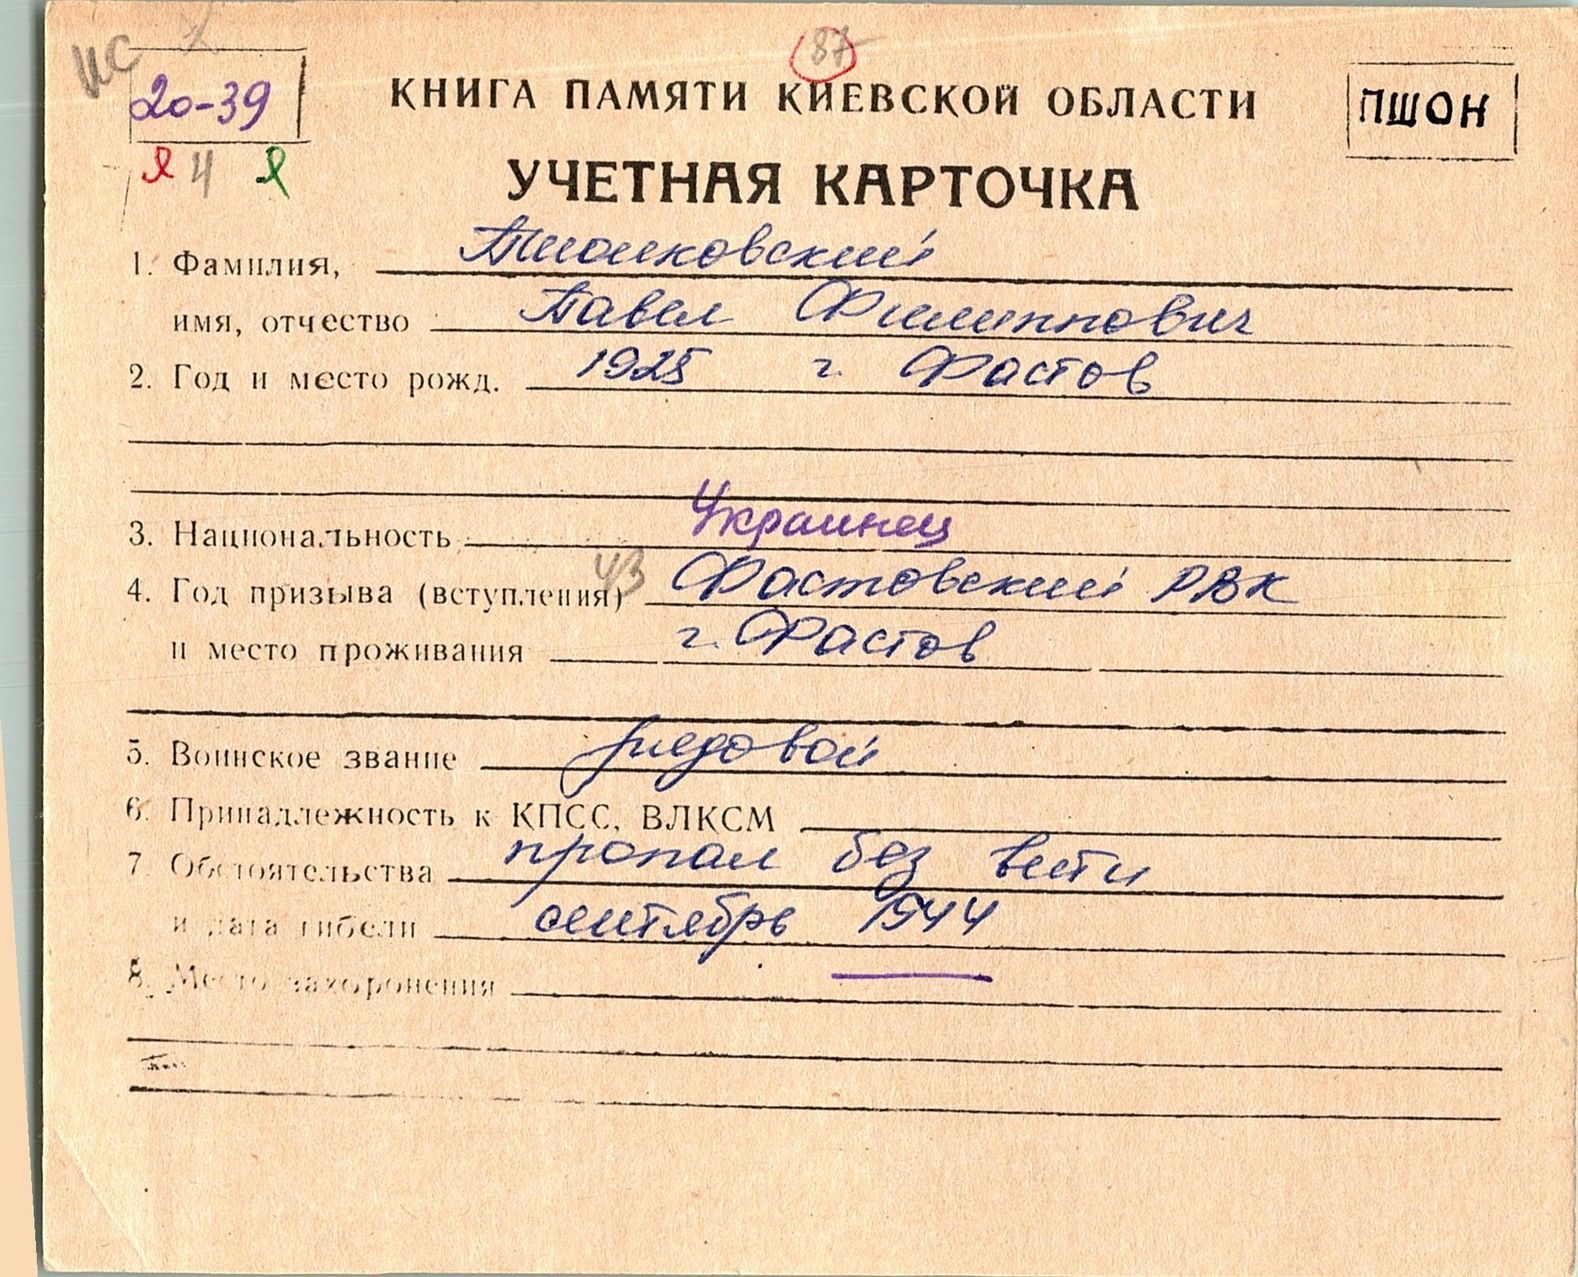 ис
87
20-39
КНИГА ПАМЯТИ КИЕВСКОЙ ОБЛАСТИ
ПШОН
4
УЧЕТНАЯ КАРТОЧКА
1. Фамилия, Пшонковский
имя, отчество Павел Филиппович
2. Год и место рожд. 1925 г. Фастов
3. Национальность Украинец
4. Год призыва (вступления) 43 Фастовский РВК
и место проживания г. Фастов
5. Воинское звание рядовой
6. Принадлежность к КПСС, ВЛКСМ
7. Обстоятельства пропал без вести
и дата гибели сентябрь 1944
8. Место захоронения